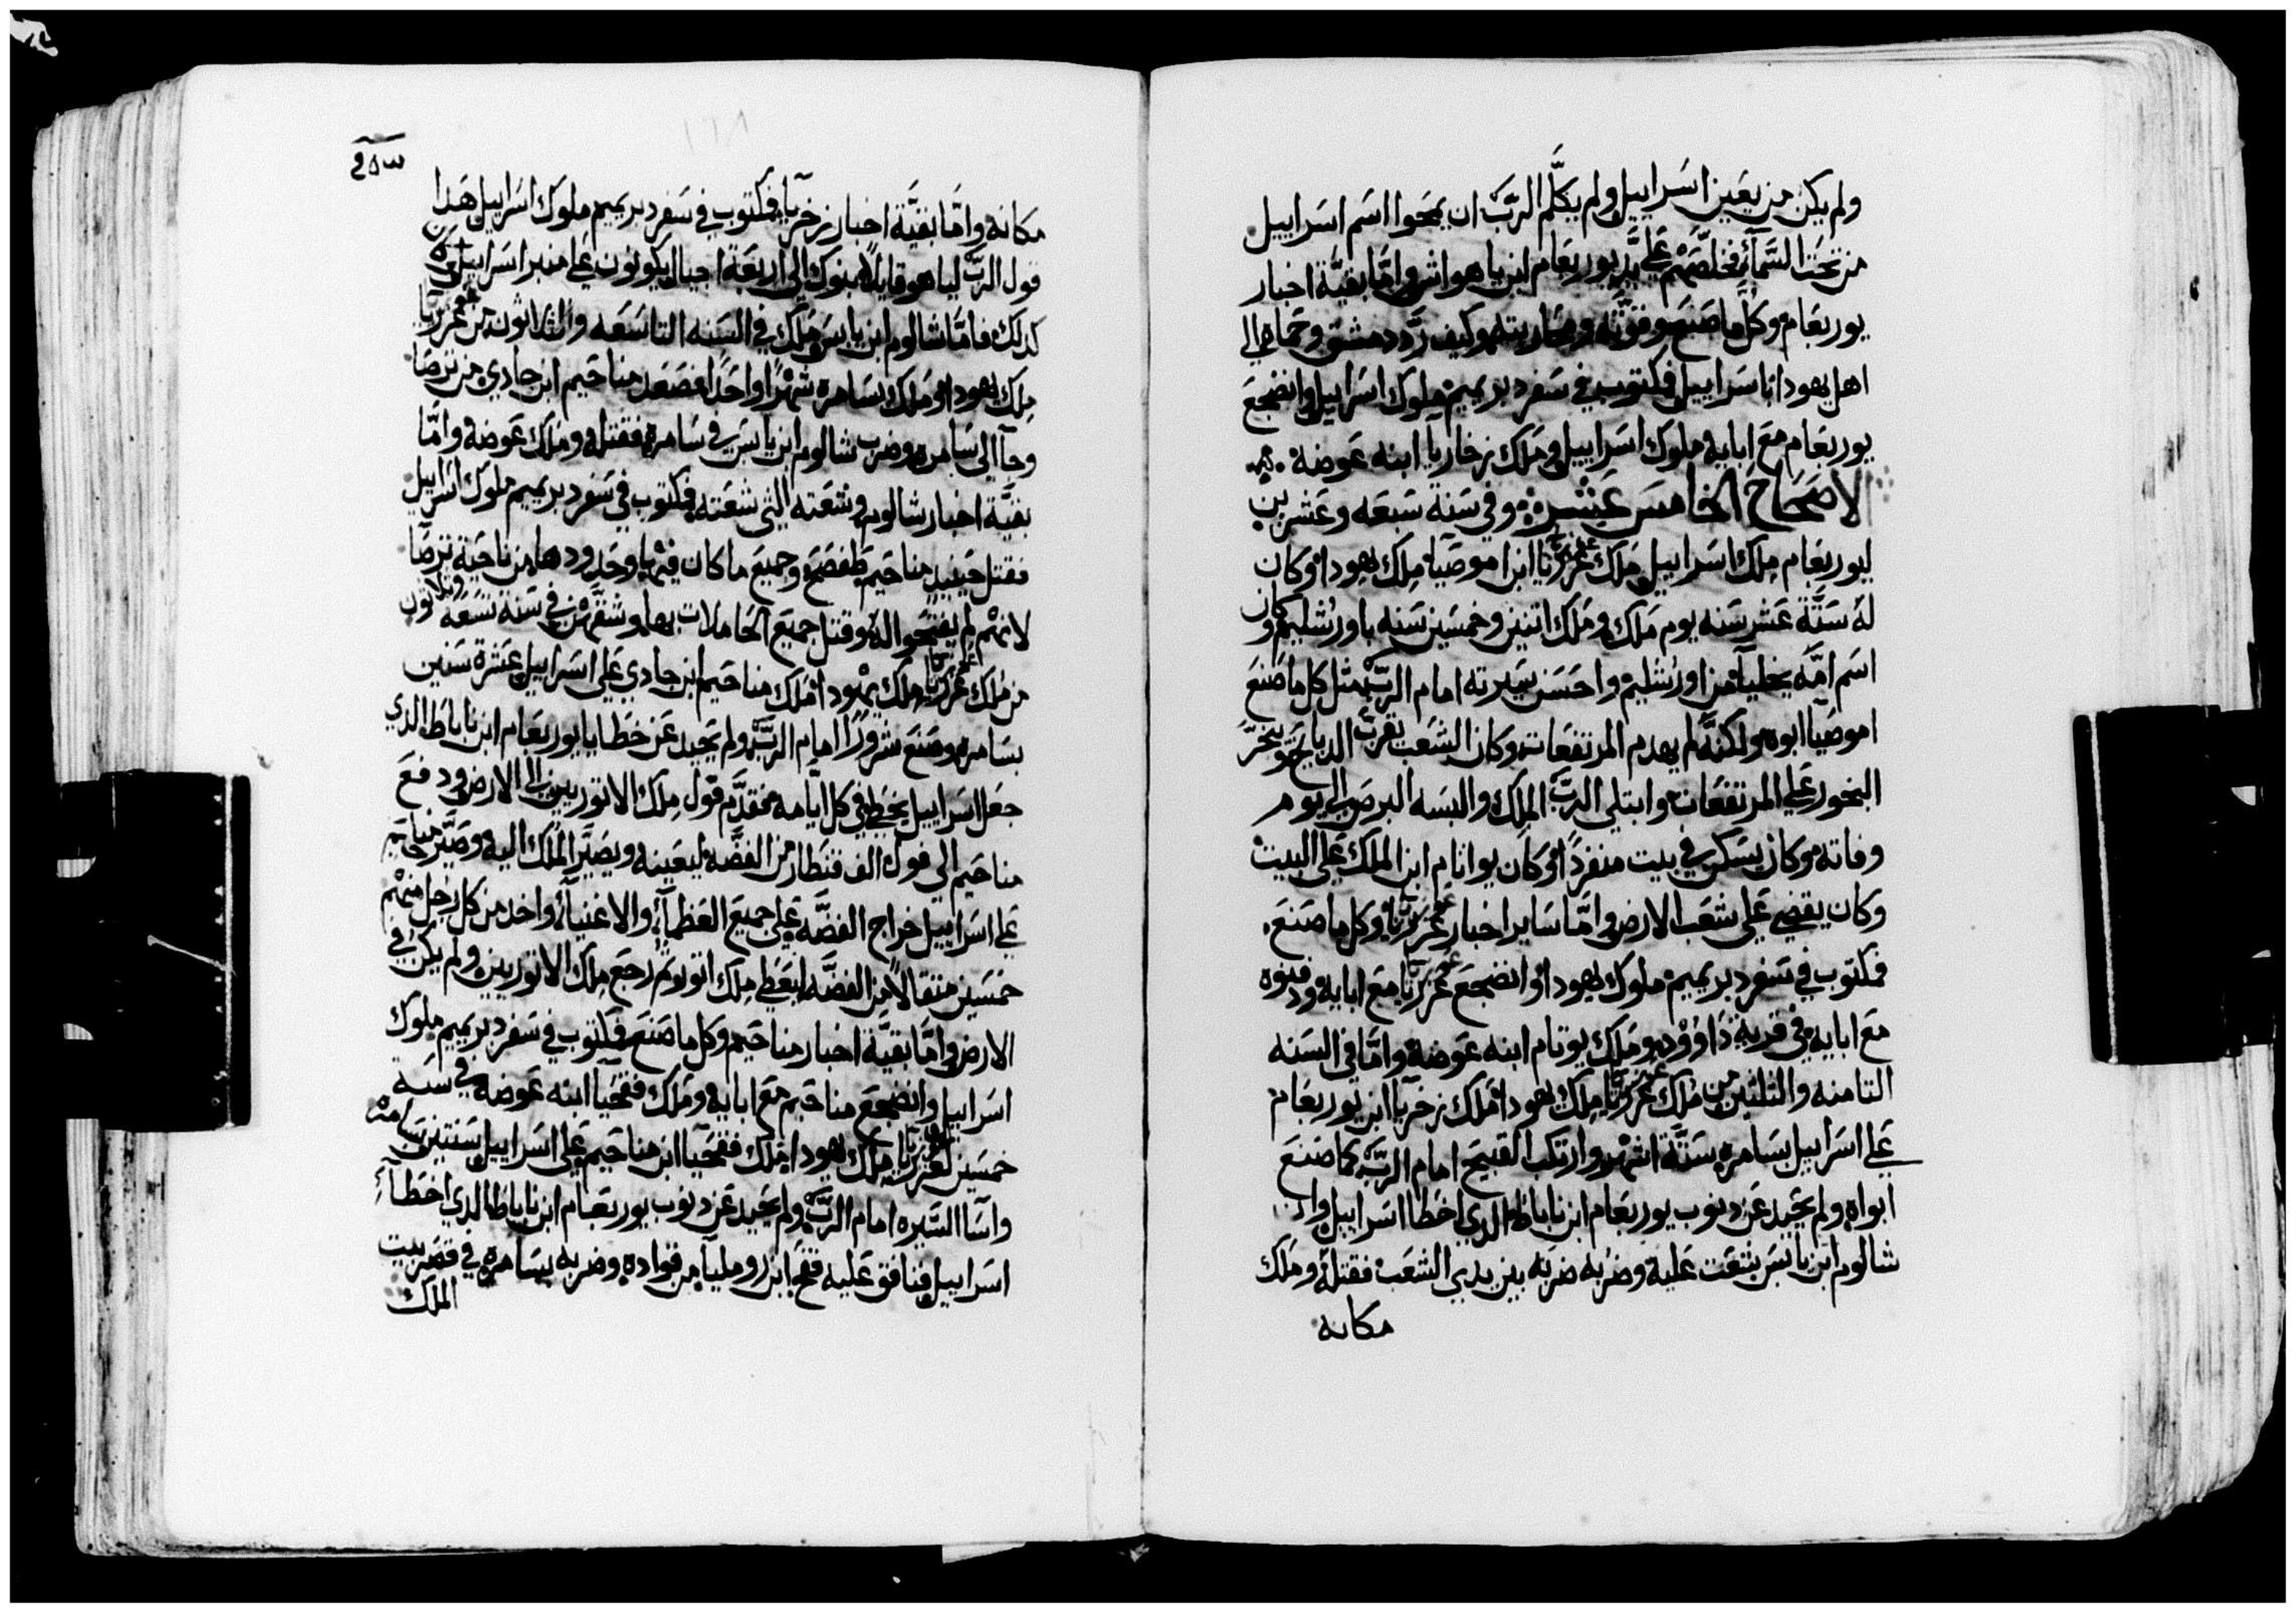 ولم يكن من يعين اسراييل ولم يكلم الربّ ان يمحوا اسم اسراييل
من تحت السمآء فخلّصهم على يد يوربعام ابن ياهواش وامّا بقيّة اخبار
يوربعام وكل ما صنع وقوّته ومحاربته وكيف ردّ دمشق وحماه الى
اهل يهودا اسراييل فمكتوب في سفر دبريميم ملوك اسراييل وانضجع
يوربعام مع ابايه ملوك اسراييل وملك زخاريا ابنه عوضه
الاصحاح الخامس عشر وفي سنة سبعه وعشرين
ليوربعام ملك اسراييل ملك عزريا ابن اموصيا ملك يهودا وكان
له ستّة عشر سنه يوم ملك وملك اتنين وخمسين سنه باورشليم وكان
اسم امّه يخليا من اورشليم واحسن سيرته امام الربّ مثل كل ما صنع
اموصيا ابوه ولكنّه لم يهدم المرتفعات وكان الشعب يقرب الدبايح ويبخّر
البخور على المرتفعات وابتلى الربّ الملك والبسه البرص الى يوم
وفاته وكان يسكن في بيت منفردًا وكان يواتام ابن الملك على البيت
وكان يقضي على شعب الارض وامّا ساير اخبار عزريا وكل ما صنع
فمكتوب في سفر دبريميم ملوك يهودا وانضجع عزريا مع ابايه ودفنوه
مع ابايه في قرية داوود وملك يوتام ابنه عوضه وامّا في السنه
التامنه والتلتين من ملك عزريا ملك يهودا ملك زخريا ابن يوربعام
على اسراييل بسامره ستّة اشهر وارتكب القبيح امام الربّ كما صنع
ابواه ولم يحيد عن دنوب يوربعام ابن ناباط الدي اخطا اسراييل وان
شالوم ابن يابس شعت عليه وضربه ضربه بين يدي الشعب فقتله وملك
مكانه
مكانه وامّا بقيّة اخبار زخريا فمكتوب في سفر دبريميم ملوك اسراييل هدا
قول الربّ لياهو قايلًا بنوك الى اربعة اجيال يكونون على منبر اسراييل
كدلك فامّا شالوم ابن يابس ملك في السنه التاسعه والثلاثون من عزريا
ملك يهودا وملك بسامره شهرًا واحدًا فصعد مناحيم ابن جادي من ترصا
وجآ الى سامره وضرب شالوم ابن يابس في سامره فقتله وملك عوضه وامّا
بقيّة اخبار شالوم وشعته التي شعته فمكتوب في سفر دبريميم ملوك اسراييل
فقتل حينيد مناحيم طفصح وجميع ما كان فيها وحدودها من ناحية ترصا
لانهم لم يفتحوا له وقتل جميع الحاملات بها وشقّهن في سنة تسعه وتلاتون
من ملك عزريا ملك يهودا ملك مناحيم ابن جادي على اسراييل عشرة سنين
بسامره وصنع شرورًا امام الربّ ولم يحيد عن خطايا يوربعام ابن ناباط الدي
جعل اسراييل يخطي في كل ايامه فقدم فول ملك الاتوريين الى الارض ودفع
مناحيم الى فول الف قنطار من الفضّه ليعينه ويصيّر الملك اليه وصيّر مناحيم
على اسراييل خراج الفضّه على جميع العظمآء والاغنيآء واخد من كل رجل منهم
خمسين متقالًا من الفضّه ليعطي ملك اتور ثم رجع ملك الاتوريين ولم يكن في
الارض وامّا بقيّة اخبار مناحيم وكل ما صنع فمكتوب في سفر دبريميم ملوك
اسراييل وانضجع مناحيم مع ابايه وملك فقحيآ ابنه عوضه في سنة
خمسين لعزريا ملك يهودا ملك فقحيا ابن مناحيم على اسراييل سنتين بسامره
واسا السيره امام الربّ ولم يحيد عن دنوب يوربعام ابن ناباط الدي اخطآء
اسراييل فنافق عليه فقح ابن روملياء من قواده وضربه بسامره في قصر بيت
الملك